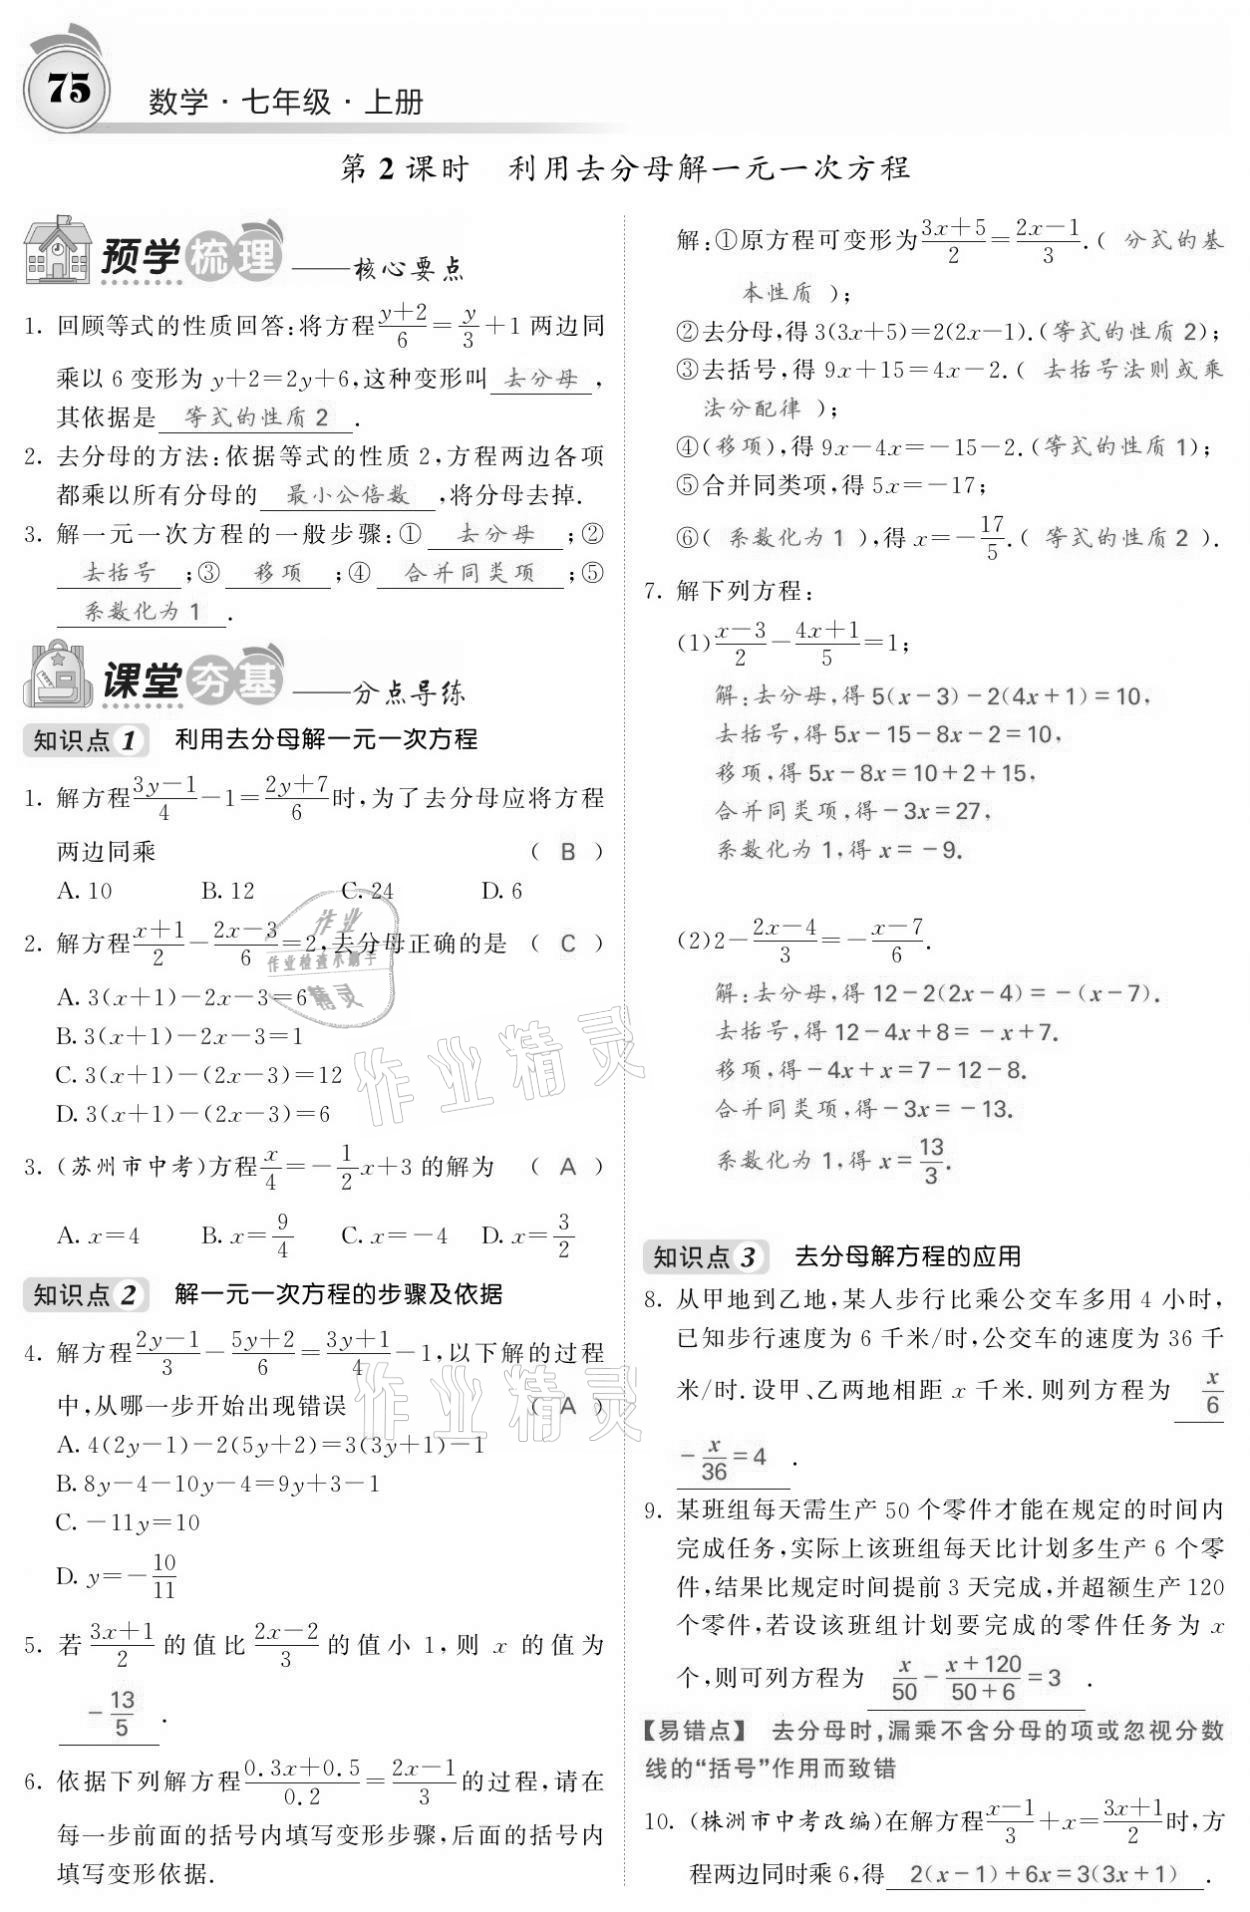 75
数学·七年级·上册
第2课时 利用去分母解一元一次方程
预学梳理——核心要点
1. 回顾等式的性质回答:将方程(y+2)/6=y/3+1两边同
乘以6变形为y+2=2y+6,这种变形叫 去分母 ,
其依据是 等式的性质2 .
2. 去分母的方法:依据等式的性质2,方程两边各项
都乘以所有分母的 最小公倍数 ,将分母去掉.
3. 解一元一次方程的一般步骤:① 去分母 ;②
去括号 ;③ 移项 ;④ 合并同类项 ;⑤
系数化为1 .
课堂夯基——分点导练
知识点1 利用去分母解一元一次方程
1. 解方程(3y-1)/4-1=(2y+7)/6时,为了去分母应将方程
两边同乘 ( B )
A. 10 B. 12 C. 24 D. 6
2. 解方程(x+1)/2-(2x-3)/6=2,去分母正确的是 ( C )
A. 3(x+1)-2x-3=6
B. 3(x+1)-2x-3=1
C. 3(x+1)-(2x-3)=12
D. 3(x+1)-(2x-3)=6
3. (苏州市中考)方程x/4=-1/2x+3的解为 ( A )
A. x=4 B. x=9/4 C. x=-4 D. x=3/2
知识点2 解一元一次方程的步骤及依据
4. 解方程(2y-1)/3-(5y+2)/6=(3y+1)/4-1,以下解的过程
中,从哪一步开始出现错误 ( A )
A. 4(2y-1)-2(5y+2)=3(3y+1)-1
B. 8y-4-10y-4=9y+3-1
C. -11y=10
D. y=-10/11
5. 若(3x+1)/2的值比(2x-2)/3的值小1,则x的值为
-13/5 .
6. 依据下列解方程(0.3x+0.5)/0.2=(2x-1)/3的过程,请在
每一步前面的括号内填写变形步骤,后面的括号内
填写变形依据.
解:①原方程可变形为(3x+5)/2=(2x-1)/3.( 分式的基
本性质 );
②去分母,得3(3x+5)=2(2x-1).(等式的性质2);
③去括号,得9x+15=4x-2.( 去括号法则或乘
法分配律 );
④(移项),得9x-4x=-15-2.(等式的性质1);
⑤合并同类项,得5x=-17;
⑥( 系数化为1 ),得x=-17/5.( 等式的性质2 ).
7. 解下列方程:
(1)(x-3)/2-(4x+1)/5=1;
解:去分母,得5(x-3)-2(4x+1)=10,
去括号,得5x-15-8x-2=10,
移项,得5x-8x=10+2+15,
合并同类项,得-3x=27,
系数化为1,得x=-9.
(2)2-(2x-4)/3=-(x-7)/6.
解:去分母,得12-2(2x-4)=-(x-7).
去括号,得12-4x+8=-x+7.
移项,得-4x+x=7-12-8.
合并同类项,得-3x=-13.
系数化为1,得x=13/3.
知识点3 去分母解方程的应用
8. 从甲地到乙地,某人步行比乘公交车多用4小时,
已知步行速度为6千米/时,公交车的速度为36千
米/时.设甲、乙两地相距x千米.则列方程为 x/6
-x/36=4 .
9. 某班组每天需生产50个零件才能在规定的时间内
完成任务,实际上该班组每天比计划多生产6个零
件,结果比规定时间提前3天完成,并超额生产120
个零件,若设该班组计划要完成的零件任务为x
个,则可列方程为 x/50-(x+120)/(50+6)=3 .
【易错点】 去分母时,漏乘不含分母的项或忽视分数
线的“括号”作用而致错
10. (株洲市中考改编)在解方程(x-1)/3+x=(3x+1)/2时,方
程两边同时乘6,得 2(x-1)+6x=3(3x+1) .
作业
作业检查小助手
精灵
作业精灵
作业精灵